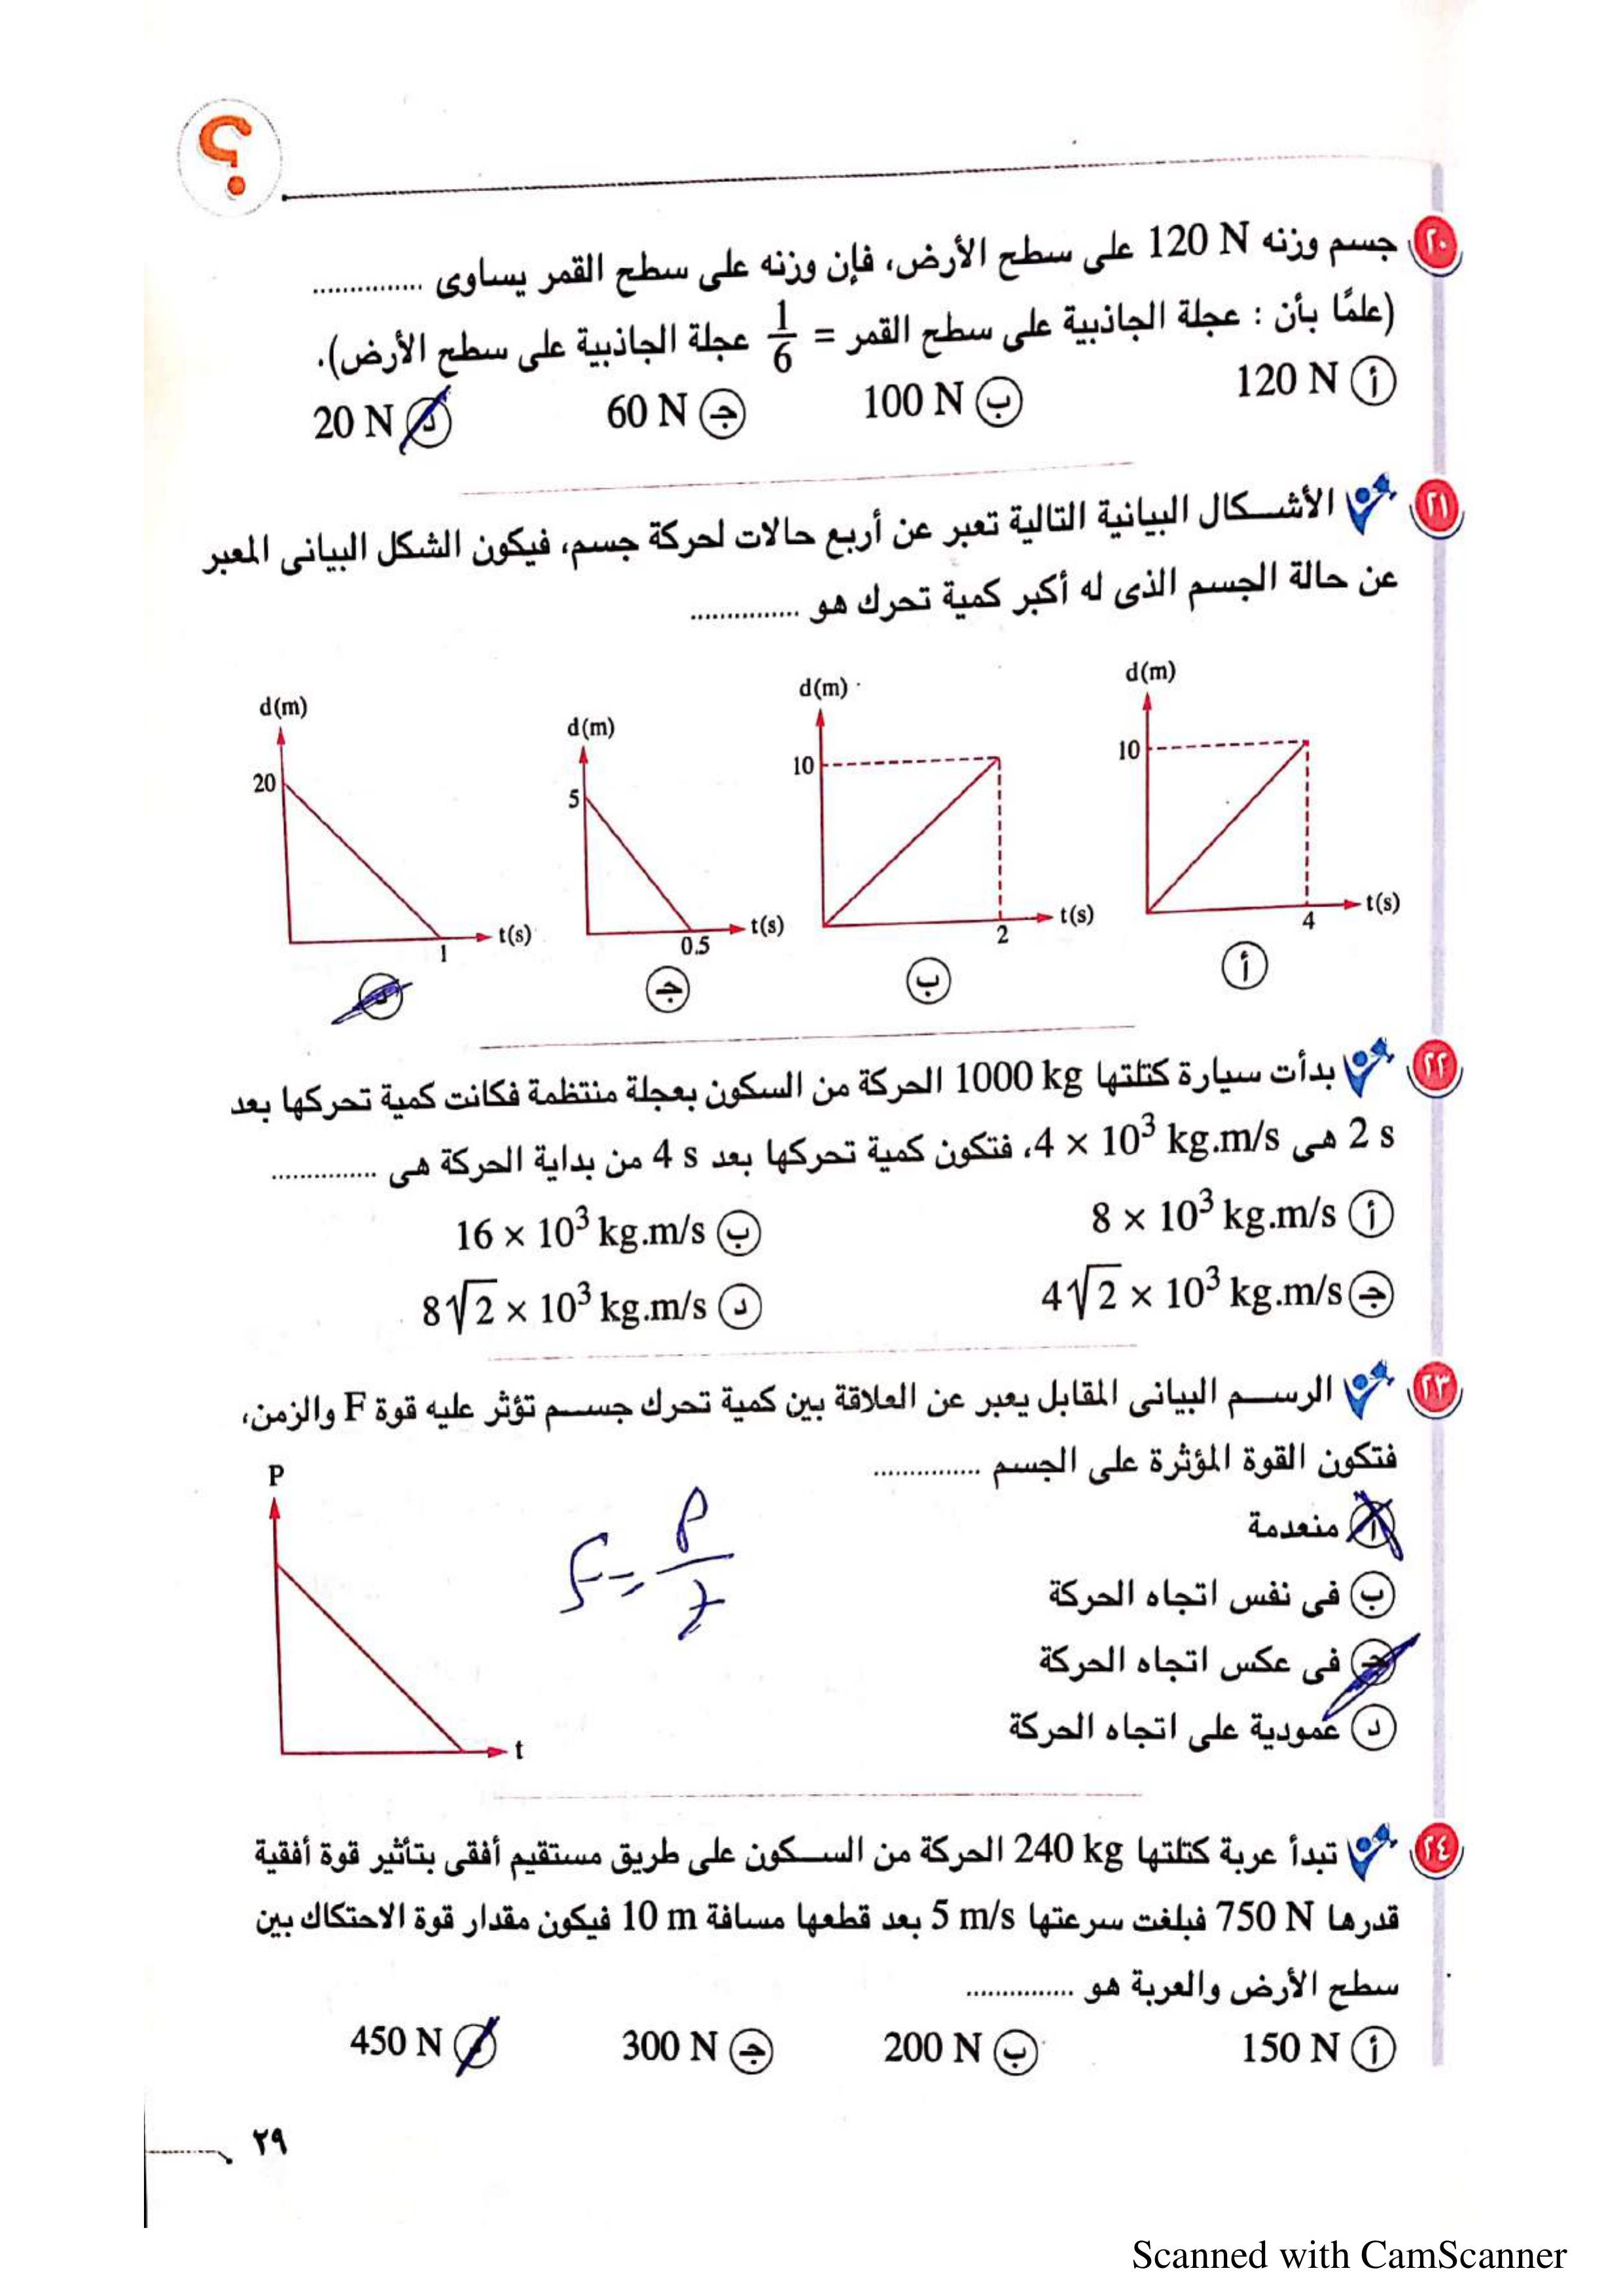 ؟
٢٠ جسم وزنه 120 N على سطح الأرض، فإن وزنه على سطح القمر يساوى ...............
(علمًا بأن : عجلة الجاذبية على سطح القمر = 1/6 عجلة الجاذبية على سطح الأرض).
أ 120 N ب 100 N جـ 60 N د 20 N
٢١ الأشكال البيانية التالية تعبر عن أربع حالات لحركة جسم، فيكون الشكل البيانى المعبر
عن حالة الجسم الذى له أكبر كمية تحرك هو ...............
d(m) d(m) d(m) d(m)
10 10 5 20
t(s) t(s) t(s) t(s)
4 2 0.5 1
أ ب جـ د
٢٢ بدأت سيارة كتلتها 1000 kg الحركة من السكون بعجلة منتظمة فكانت كمية تحركها بعد
2 s هى 4 × 10³ kg.m/s، فتكون كمية تحركها بعد 4 s من بداية الحركة هى ...............
أ 8 × 10³ kg.m/s ب 16 × 10³ kg.m/s
جـ 4√2 × 10³ kg.m/s د 8√2 × 10³ kg.m/s
٢٣ الرسم البيانى المقابل يعبر عن العلاقة بين كمية تحرك جسم تؤثر عليه قوة F والزمن،
فتكون القوة المؤثرة على الجسم ...............
أ منعدمة
ب فى نفس اتجاه الحركة
جـ فى عكس اتجاه الحركة
د عمودية على اتجاه الحركة
P
t
F = P/t
٢٤ تبدأ عربة كتلتها 240 kg الحركة من السكون على طريق مستقيم أفقى بتأثير قوة أفقية
قدرها 750 N فبلغت سرعتها 5 m/s بعد قطعها مسافة 10 m فيكون مقدار قوة الاحتكاك بين
سطح الأرض والعربة هو ...............
أ 150 N ب 200 N جـ 300 N د 450 N
٢٩
Scanned with CamScanner